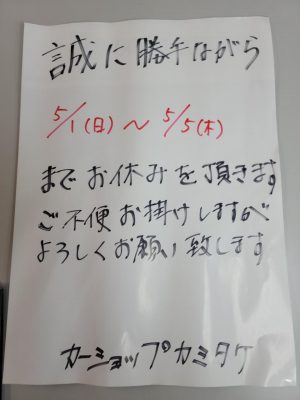 誠に勝手ながら
5/1(日)〜5/5(木)
までお休みを頂きます
ご不便お掛けしますが
よろしくお願い致します
カーショップカミタケ